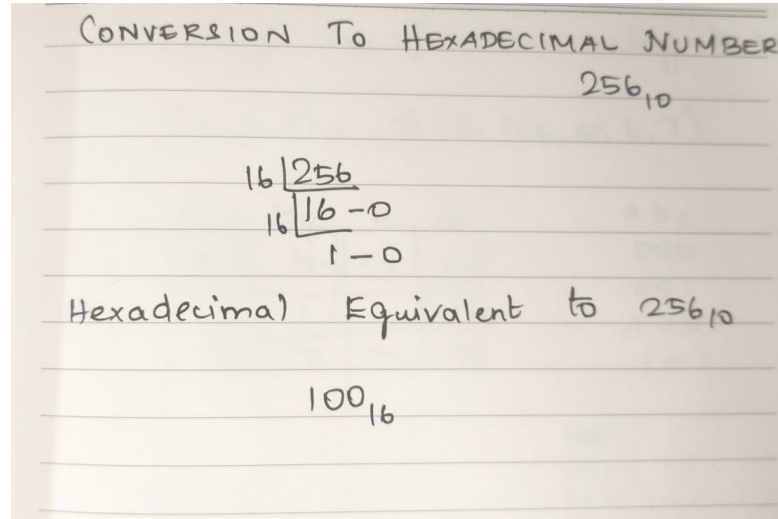 CONVERSION TO HEXADECIMAL NUMBER
256₁₀
16 | 256
16 | 16 - 0
1 - 0
Hexadecimal Equivalent to 256₁₀
100₁₆